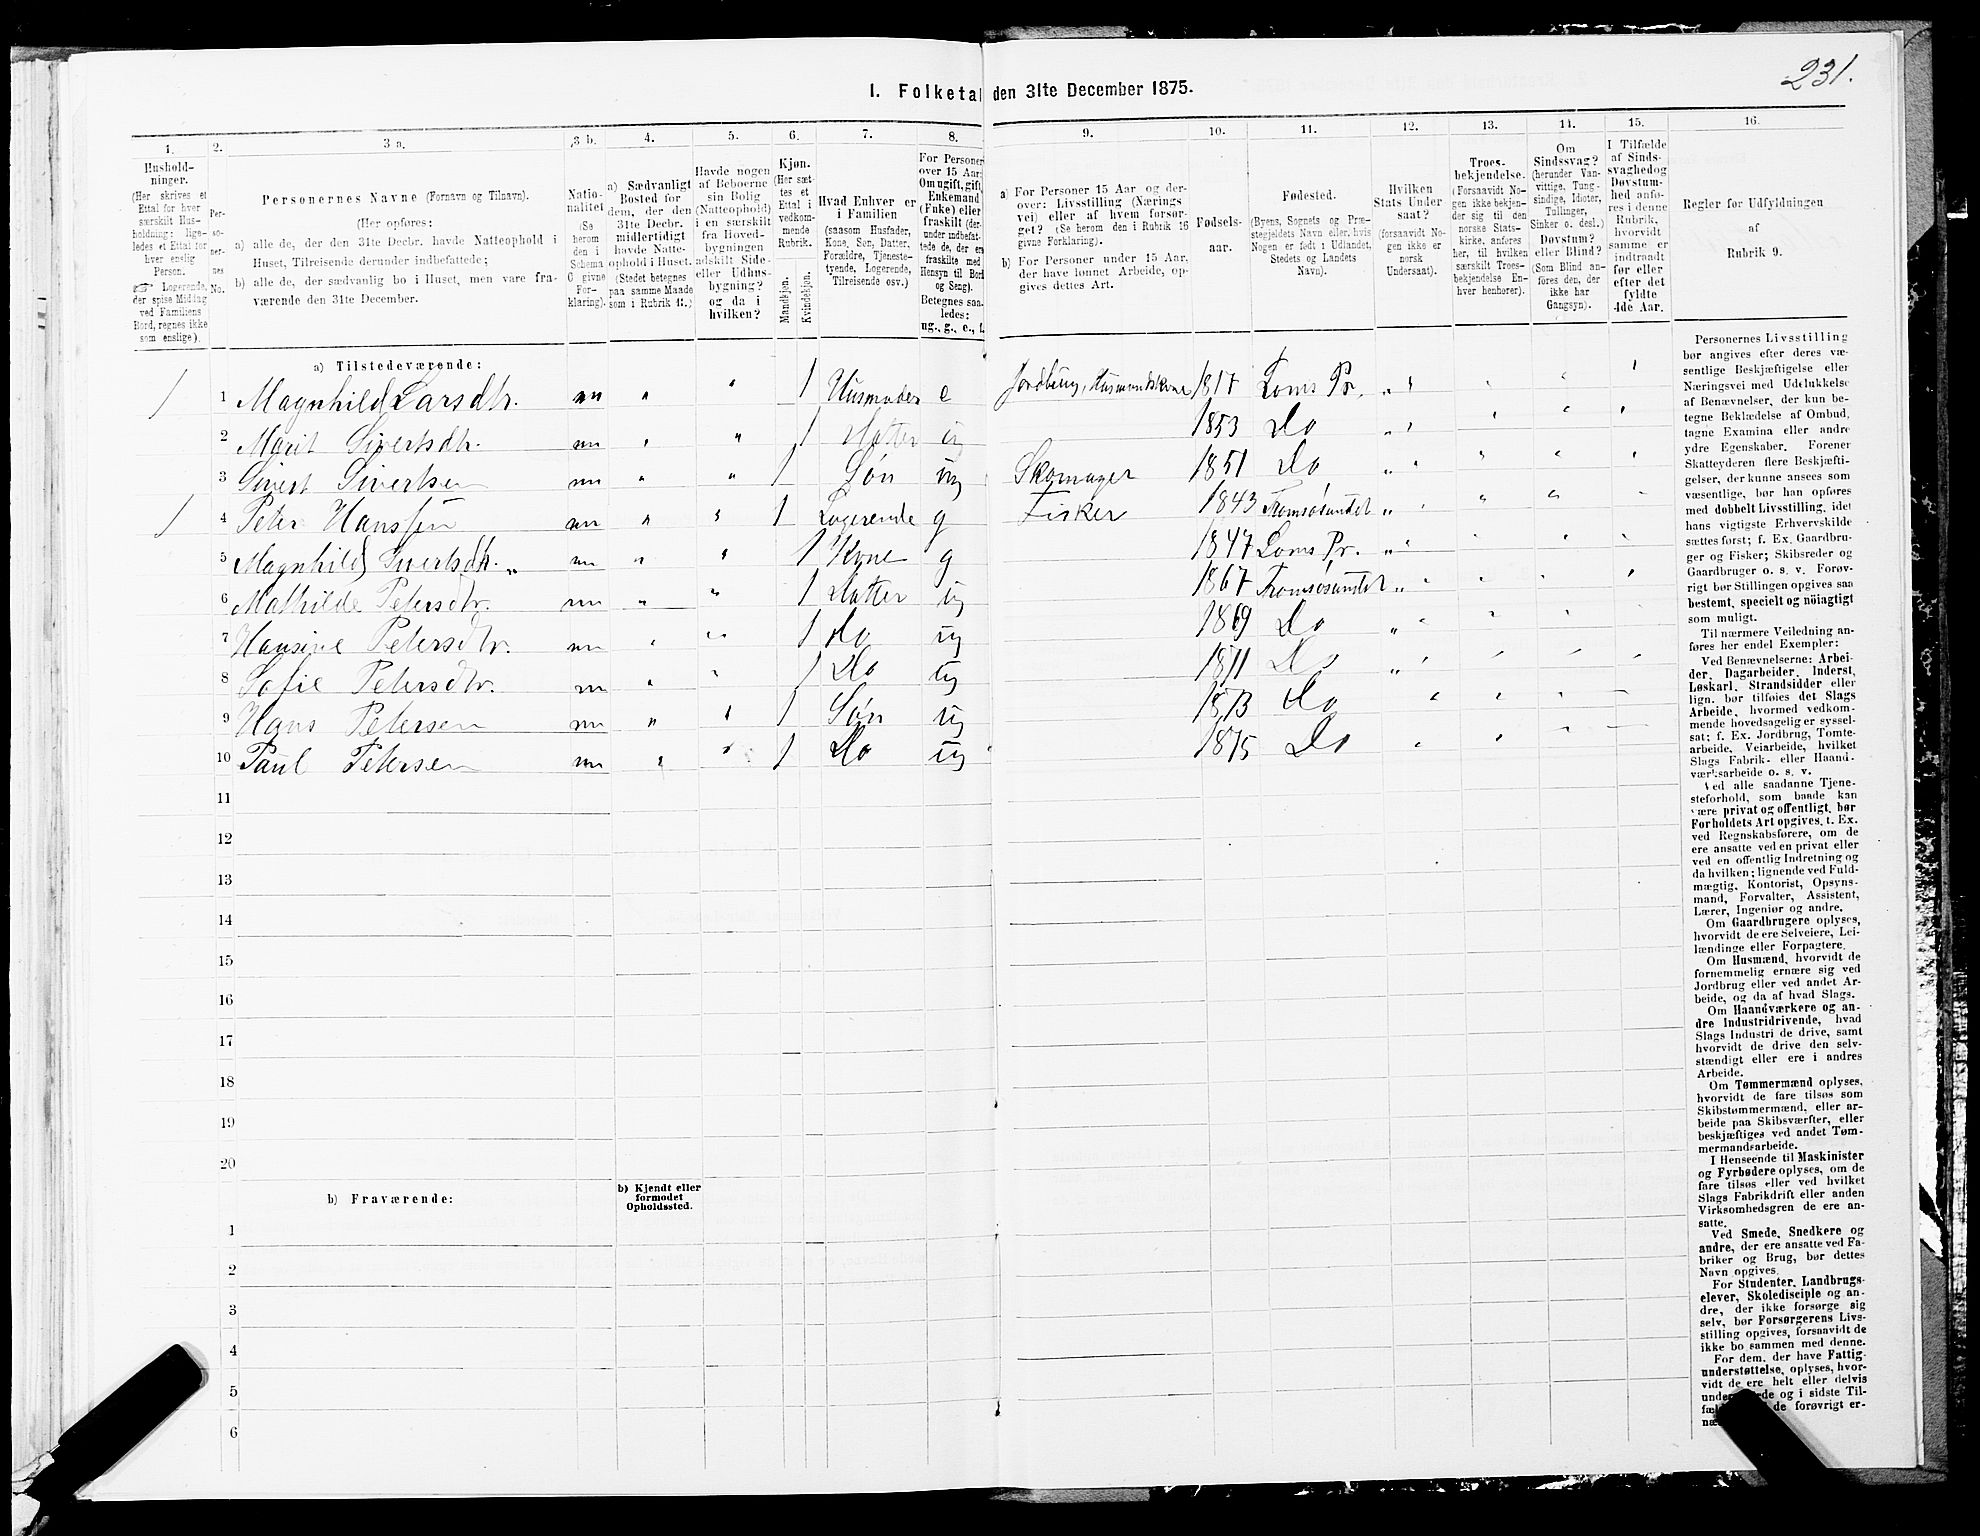 231.
I. Folketal den 31te December 1875.
1. 2. 3 a. 3 b. 4. 5. 6. 7. 8. 9. 10. 11. 12. 13. 14. 15. 16.
Hushold-
ninger.
(Her skrives et
Ettal for hver
særskilt Hus-
holdning: lige-
ledes et Ettal for
hver enslig
Person.
☞ Logerende,
der spise Middag
ved Familiens
Bord, regnes ikke
som enslige).
Per-
so-
ner-
nes
No.
Personernes Navne (Fornavn og Tilnavn).
(Her opføres:
a) alle de, der den 31te Decbr. havde Natteophold i
Huset, Tilreisende derunder indbefattede;
b) alle de, der sædvanlig bo i Huset, men vare fra-
værende den 31te December.
Natio-
nalitet
(Se
herom
den i
Schema
6 givne
For-
klaring).
a) Sædvanligt
Bosted for
dem, der den
31te Decbr.
midlertidigt
havde Natte-
ophold i Huset.
(Stedet betegnes
paa samme Maade
som i Rubrik 11.)
Havde nogen
af Beboerne
sin Bolig
(Natteophold)
i en særskilt
fra Hoved-
bygningen
adskilt Side-
eller Udhus-
bygning?
og da i
hvilken?
Kjøn.
(Her sæt-
tes et
Ettal i
vedkom-
mende
Rubrik.
Mandkjøn.
Kvindekjøn.
Hvad Enhver er
i Familien
(saasom Husfader,
Kone, Søn, Datter,
Forældre, Tjeneste-
tyende, Logerende,
Tilreisende osv.)
For Personer
over 15 Aar:
Om ugift, gift,
Enkemand
(Enke) eller
fraskilt (der-
under indbefat-
tede de, der ere
fraskilte med
Hensyn til Bord
og Seng).
Betegnes saa-
ledes:
ug., g., e., f.
a) For Personer 15 Aar og der-
over: Livsstilling (Nærings
vei) eller af hvem forsør-
get? (Se herom den i Rubrik 16
givne Forklaring).
b) For Personer under 15 Aar,
der have lønnet Arbeide, op-
gives dettes Art.
Fødsels-
aar.
Fødested.
(Byens, Sognets og Præ-
stegjeldets Navn eller, hvis
Nogen er født i Udlandet,
Stedets og Landets
Navn).
Hvilken
Stats Under
saat?
(forsaavidt No-
gen ikke er
norsk
Undersaat).
Troes-
bekjendelse.
(Forsaavidt No-
gen ikke bekjen-
der sig til den
norske Stats-
kirke, anføres
her, til hvilken
særskilt Troes-
bekjendelse En-
hver henhører).
Om
Sindssvag?
(herunder Van-
vittige, Tung-
sindige, Idioter,
Tullinger,
Sinker o. desl.)
Døvstum?
eller Blind?
(Som Blind an-
føres den, der
ikke har
Gangsyn).
I Tilfælde
af Sinds-
svaghed og
Døvstum-
hed anfø-
res i denne
Rubrik,
hvorvidt
samme er
indtraadt
før eller
efter det
fyldte
4de Aar.
Regler for Udfyldningen
af
Rubrik 9.
a) Tilstedeværende:
/ 1 Magnhild Larsdtr. nn " " / Husmoder e Jordbrug, Husmandskone 1817 Loms Pr.
2 Marit Sivertsdtr. nn " " / Datter ug 1853 Do
3 Sivert Sivertsen nn " " / Søn ug Skomager 1851 Do
/ 4 Peter Hanssen nn " " 1 Logerende g Fisker 1843 Tromsøsundet
5 Magnhild Sivertsdtr. nn " " / Kone g 1847 Loms Pr.
6 Mathilde Petersdtr. nn " " 1 Datter ug 1867 Tromsøsundet
7 Hansine Petersdtr. nn " " 1 Do ug 1869 Do
8 Sofie Petersdtr. nn " " / Do ug 1871 Do
9 Hans Petersen nn " " 1 Søn ug 1873 Do
10 Paul Petersen nn " " 1 Do ug 1875 Do
11
12
13
14
15
16
17
18
19
20
b) Fraværende:
b) Kjendt eller
formodet
Opholdssted.
1
2
3
4
5
6
Personernes Livsstilling
bør angives efter deres væ-
sentlige Beskjæftigelse eller
Næringsvei med Udelukkelse
af Benævnelser, der kun be-
tegne Beklædelse af Ombud,
tagne Examina eller andre
ydre Egenskaber. Forener
Skatteyderen flere Beskjæfti-
gelser, der kunne ansees som
væsentlige, bør han opføres
med dobbelt Livsstilling, idet
hans vigtigste Erhvervskilde
sættes først; f. Ex. Gaardbru-
ger og Fisker; Skibsreder og
Gaardbruger o. s. v. Forøv-
rigt bør Stillingen opgives saa
bestemt, specielt og nöiagtigt
som muligt.
Til nærmere Veiledning an-
føres her endel Exempler:
Ved Benævnelserne: Arbei-
der, Dagarbeider, Inderst,
Løskarl, Strandsidder eller
lign. bør tilføies det Slags
Arbeide, hvormed vedkom-
mende hovedsagelig er syssel-
sat; f. Ex. Jordbrug, Tomte-
arbeide, Veiarbeide, hvilket
Slags Fabrik- eller Haand-
værksarbeide o. s. v.
Ved alle saadanne Tjene-
steforhold, som baade kan
være privat og offentligt, bør
Forholdets Art opgives, t. Ex.
ved Regnskabsførere, om de
ere ansatte ved en privat eller
ved en offentlig Indretning og
da hvilken; lignende ved Fuld-
mægtig, Kontorist, Opsyns-
mand, Forvalter, Assistent,
Lærer, Ingeniør og andre.
Om Gaardbrugere oplyses,
hvorvidt de ere Selveiere, Lei-
lændinge eller Forpagtere.
Om Husmænd, hvorvidt de
fornemmelig ernære sig ved
Jordbrug eller ved andet Ar-
beide, og da af hvad Slags.
Om Haandværkere og an-
dre Industridrivende, hvad
Slags Industri de drive, samt
hvorvidt de drive den selv-
stændigt eller ere i andres
Arbeide.
Om Tømmermænd oplyses,
hvorvidt de fare tilsøs som
Skibstømmermænd, eller ar-
beide paa Skibsværfter, eller
beskjæftiges ved andet Tøm-
mermandsarbeide.
I Henseende til Maskinister
og Fyrbødere oplyses, om de
fare tilsøs eller ved hvilket
Slags Fabrikdrift eller anden
Virksomhedsgren de ere an-
satte.
Ved Smede, Snedkere og
andre, der ere ansatte ved Fa-
briker og Brug, bør dettes
Navn opgives.
For Studenter, Landbrugs-
elever, Skoledisciple og an-
dre, der ikke forsørge sig
selv, bør Forsørgerens Livs-
stilling opgives, forsaavidt de
ikke bo sammen med denne.
For dem, der have Fattig-
understøttelse, oplyses, hvor-
vidt de ere helt eller delvis
og i sidste Til-
de forøvrigt er-